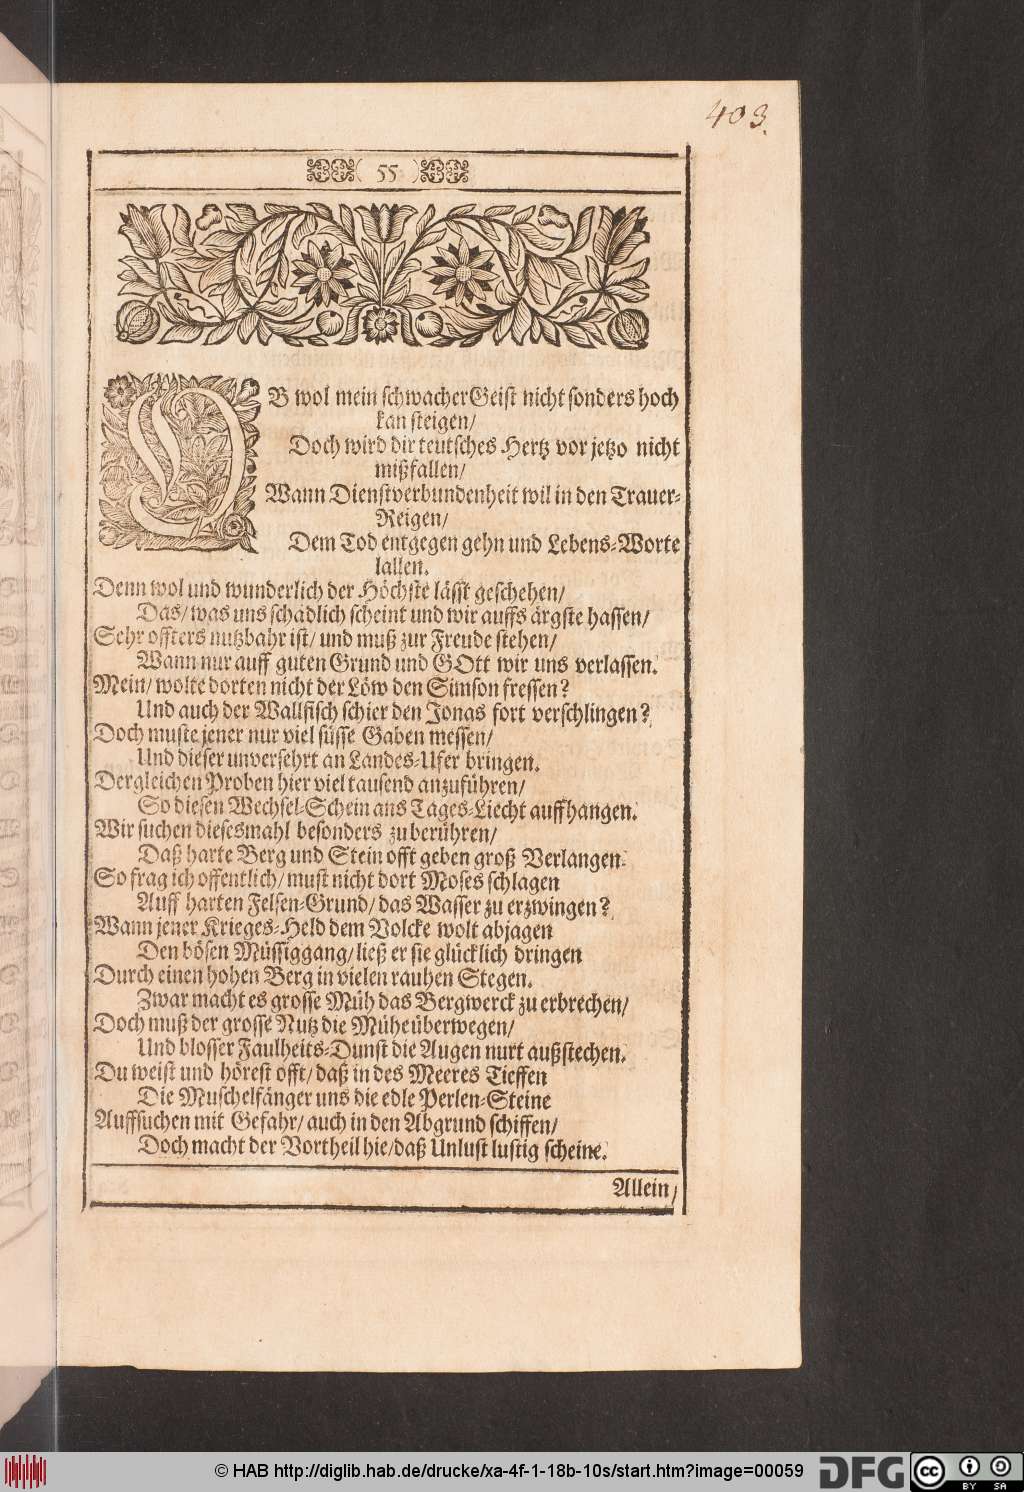 403.
( 55 )
OB wol mein schwacher Geist nicht sonders hoch
kan steigen/
Doch wird dir teutsches Hertz vor jetzo nicht
mißfallen/
Wann Dienstverbundenheit wil in den Trauer-
Reigen/
Dem Tod entgegen gehn und Lebens-Worte
lallen.
Denn wol und wunderlich der Höchste lässt geschehen/
Das/ was uns schädlich scheint und wir auffs ärgste hassen/
Sehr offters nutzbahr ist/ und muß zur Freude stehen/
Wann nur auff guten Grund und GOtt wir uns verlassen.
Mein/ wolte dorten nicht der Löw den Simson fressen?
Und auch der Wallfisch schier den Jonas fort verschlingen?
Doch muste jener nur viel süsse Gaben messen/
Und dieser unversehrt an Landes-Ufer bringen.
Dergleichen Proben hier viel tausend anzuführen/
So diesen Wechsel-Schein ans Tages-Liecht auffhangen.
Wir suchen diesesmahl besonders zu berühren/
Daß harte Berg und Stein offt geben groß Verlangen.
So frag ich offentlich/ must nicht dort Moses schlagen
Auff harten Felsen-Grund/ das Wasser zu erzwingen?
Wann jener Krieges-Held dem Volcke wolt abjagen
Den bösen Müssiggang/ ließ er sie glücklich dringen
Durch einen hohen Berg in vielen rauhen Stegen.
Zwar macht es grosse Müh das Bergwerck zu erbrechen/
Doch muß der grosse Nutz die Mühe überwegen/
Und blosser Faulheits-Dunst die Augen nurt außstechen.
Du weist und hörest offt/ daß in des Meeres Tieffen
Die Muschelfänger uns die edle Perlen-Steine
Auffsuchen mit Gefahr/ auch in den Abgrund schiffen/
Doch macht der Vortheil hie/ daß Unlust lustig scheine.
Allein/
© HAB http://diglib.hab.de/drucke/xa-4f-1-18b-10s/start.htm?image=00059
DFG
cc BY SA